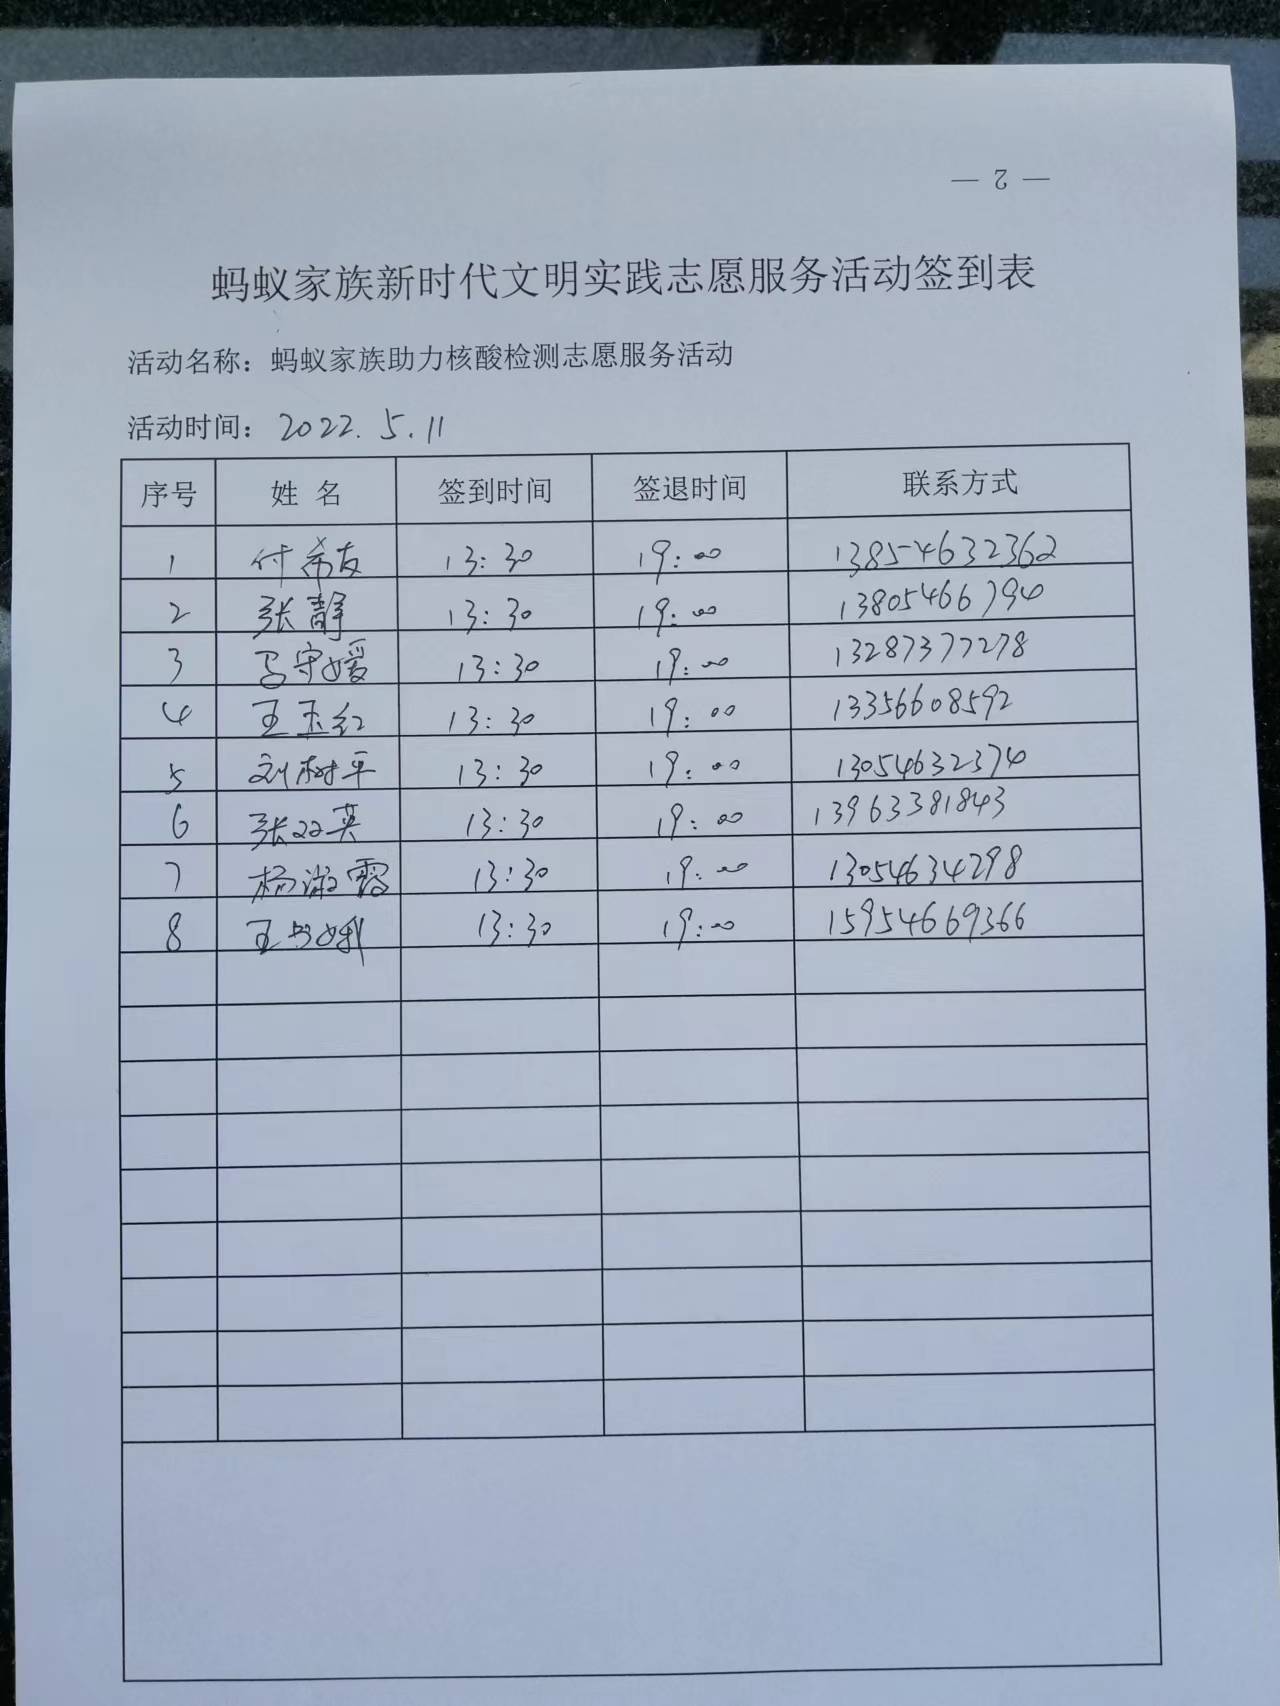 — 2 —
蚂蚁家族新时代文明实践志愿服务活动签到表
活动名称：蚂蚁家族助力核酸检测志愿服务活动
活动时间：2022.5.11
序号 姓名 签到时间 签退时间 联系方式
1 付希友 13:30 19:00 13854632362
2 张静 13:30 19:00 13805466794
3 马守媛 13:30 19:00 13287377278
4 王玉红 13:30 19:00 13356608592
5 刘树平 13:30 19:00 13054632374
6 张双英 13:30 19:00 13963381843
7 杨淑霞 13:30 19:00 13054634298
8 13:30 19:00 15954669366